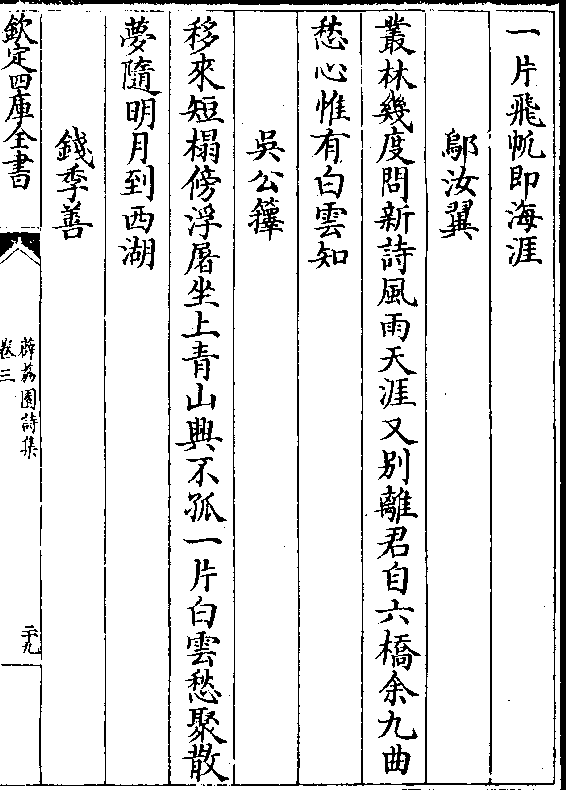 一片飛帆即海涯
鄔汝翼
叢林幾度問新詩風雨天涯又别離君自六橋余九曲
愁心惟有白雲知
吳公籜
移來短榻傍浮屠坐上青山興不孤一片白雲愁聚散
夢隨明月到西湖
錢季善
欽定四庫全書
薜荔園詩集
卷三
二十九